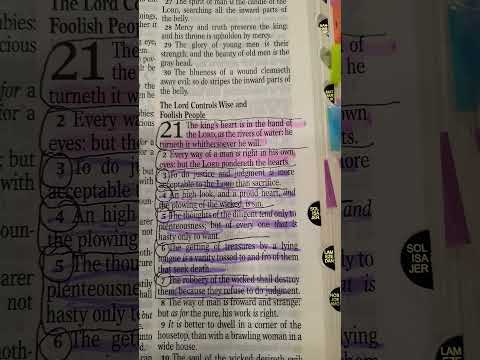 27 The spirit of man is the candle of the
LORD, searching all the inward parts of
the belly.
28 Mercy and truth preserve the king:
and his throne is upholden by mercy.
29 The glory of young men is their
strength: and the beauty of old men is the
gray head.
30 The blueness of a wound cleanseth
away evil: so do stripes the inward parts of
the belly.
The Lord Controls Wise and
Foolish People
21 The king's heart is in the hand of
the LORD, as the rivers of water: he
turneth it whithersoever he will.
2 Every way of a man is right in his own
eyes: but the LORD pondereth the hearts.
3 To do justice and judgment is more
acceptable to the LORD than sacrifice.
4 An high look, and a proud heart, and
the plowing of the wicked, is sin.
5 The thoughts of the diligent tend only to
plenteousness; but of every one that is
hasty only to want.
6 The getting of treasures by a lying
tongue is a vanity tossed to and fro of them
that seek death.
7 The robbery of the wicked shall destroy
them; because they refuse to do judgment.
8 The way of man is froward and strange:
but as for the pure, his work is right.
9 It is better to dwell in a corner of the
housetop, than with a brawling woman in a
wide house.
10 The soul of the wicked desireth evil
SOL
ISA
JER
LAM
EZE
DAN
The Lord Controls Wise
Foolish People
21 The
the
turneth it w
2 Every way
eyes: but the
3 To do jus
acceptable
4 An high
the plowing
5 The thou
plenteousn
hasty only to
6 The gett